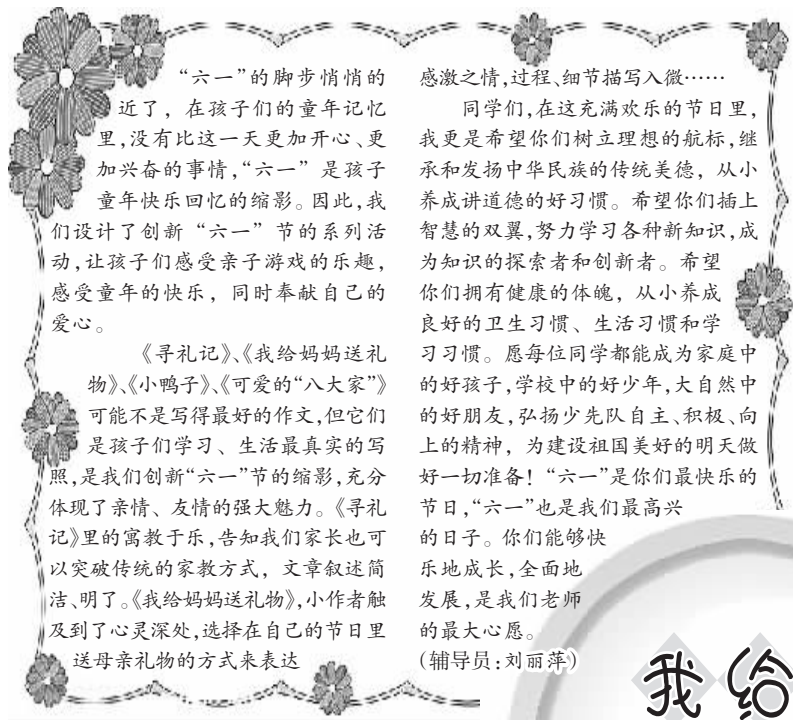 “六一”的脚步悄悄的
近了，在孩子们的童年记忆
里,没有比这一天更加开心、更
加兴奋的事情,“六一”是孩子
童年快乐回忆的缩影。因此,我
们设计了创新“六一”节的系列活
动,让孩子们感受亲子游戏的乐趣,
感受童年的快乐，同时奉献自己的
爱心。
《寻礼记》、《我给妈妈送礼
物》、《小鸭子》、《可爱的“八大家”》
可能不是写得最好的作文,但它们
是孩子们学习、生活最真实的写
照,是我们创新“六一”节的缩影,充分
体现了亲情、友情的强大魅力。《寻礼
记》里的寓教于乐,告知我们家长也可
以突破传统的家教方式，文章叙述简
洁、明了。《我给妈妈送礼物》,小作者触
及到了心灵深处,选择在自己的节日里
送母亲礼物的方式来表达
感激之情,过程、细节描写入微……
同学们,在这充满欢乐的节日里,
我更是希望你们树立理想的航标,继
承和发扬中华民族的传统美德，从小
养成讲道德的好习惯。希望你们插上
智慧的双翼,努力学习各种新知识,成
为知识的探索者和创新者。希望
你们拥有健康的体魄，从小养成
良好的卫生习惯、生活习惯和学
习习惯。愿每位同学都能成为家庭中
的好孩子,学校中的好少年,大自然中
的好朋友,弘扬少先队自主、积极、向
上的精神，为建设祖国美好的明天做
好一切准备！“六一”是你们最快乐的
节日,“六一”也是我们最高兴
的日子。你们能够快
乐地成长,全面地
发展,是我们老师
的最大心愿。
(辅导员:刘丽萍)
我给